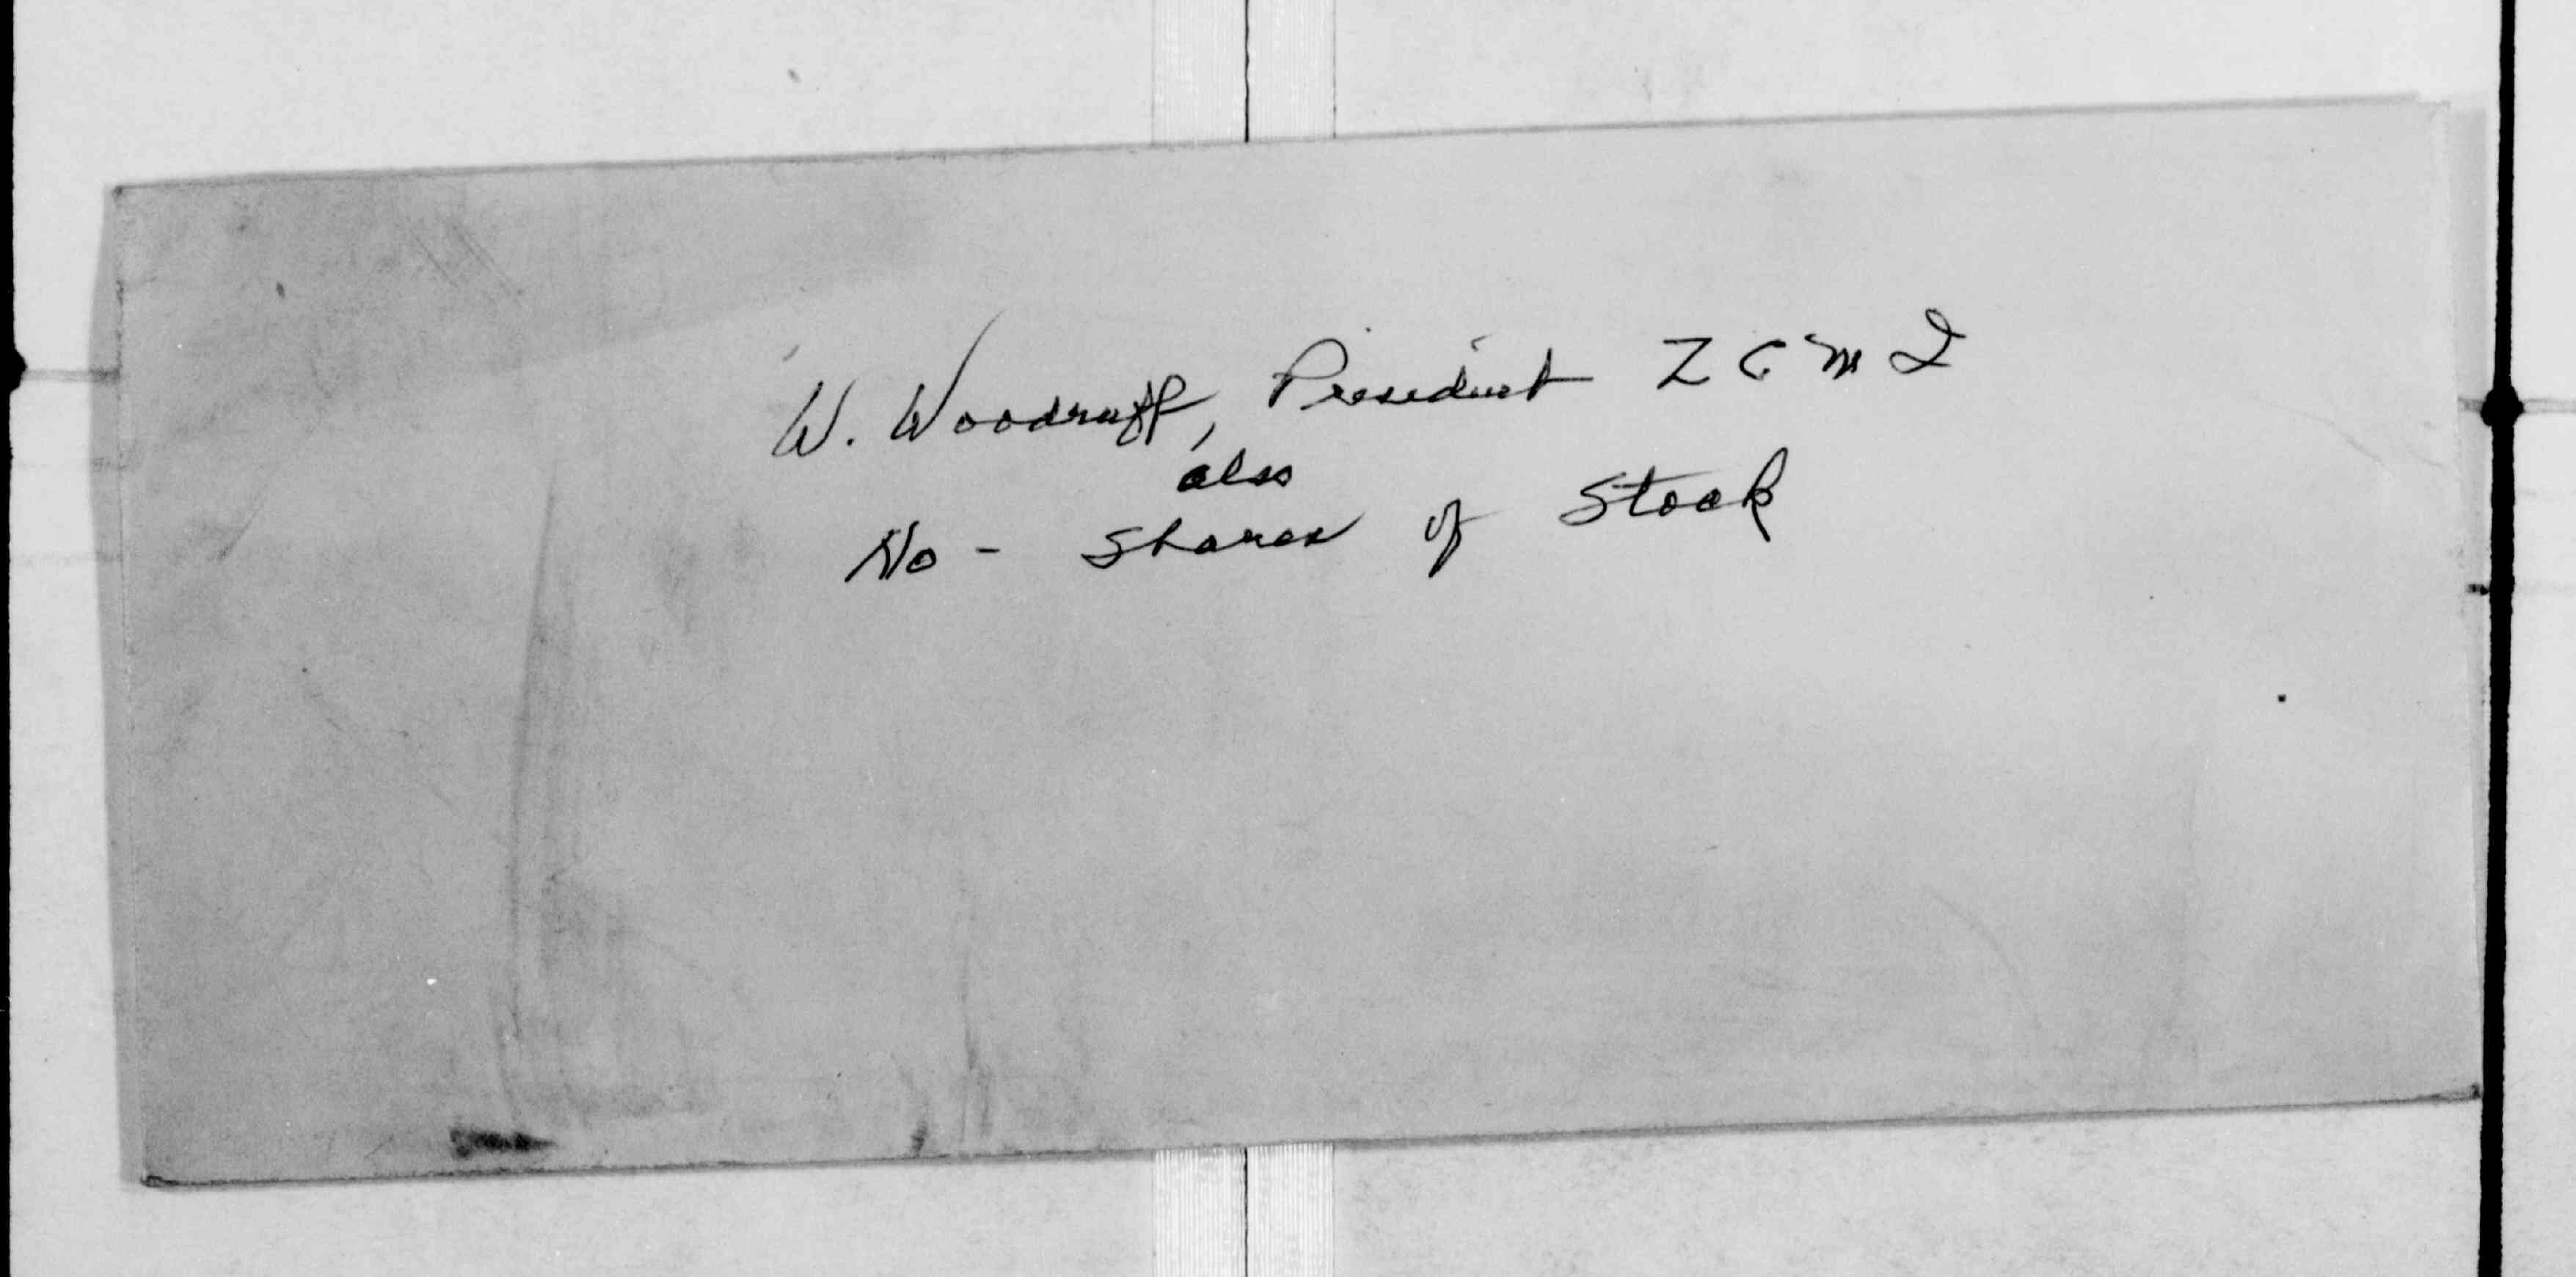 W. Woodruff, President Z C M I
also
No - Shares of Stock